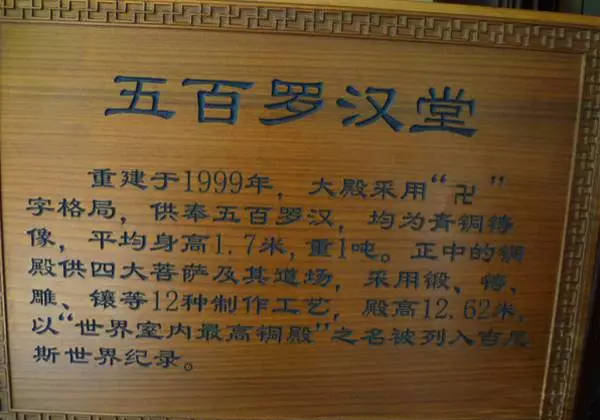 五百罗汉堂
重建于1999年，大殿采用“卍”
字格局，供奉五百罗汉，均为青铜铸
像，平均身高1.7米,重1吨。正中的铜
殿供四大菩萨及其道场，采用锻、铸、
雕、镶等12种制作工艺，殿高12.62米，
以“世界室内最高铜殿”之名被列入吉尼
斯世界纪录。